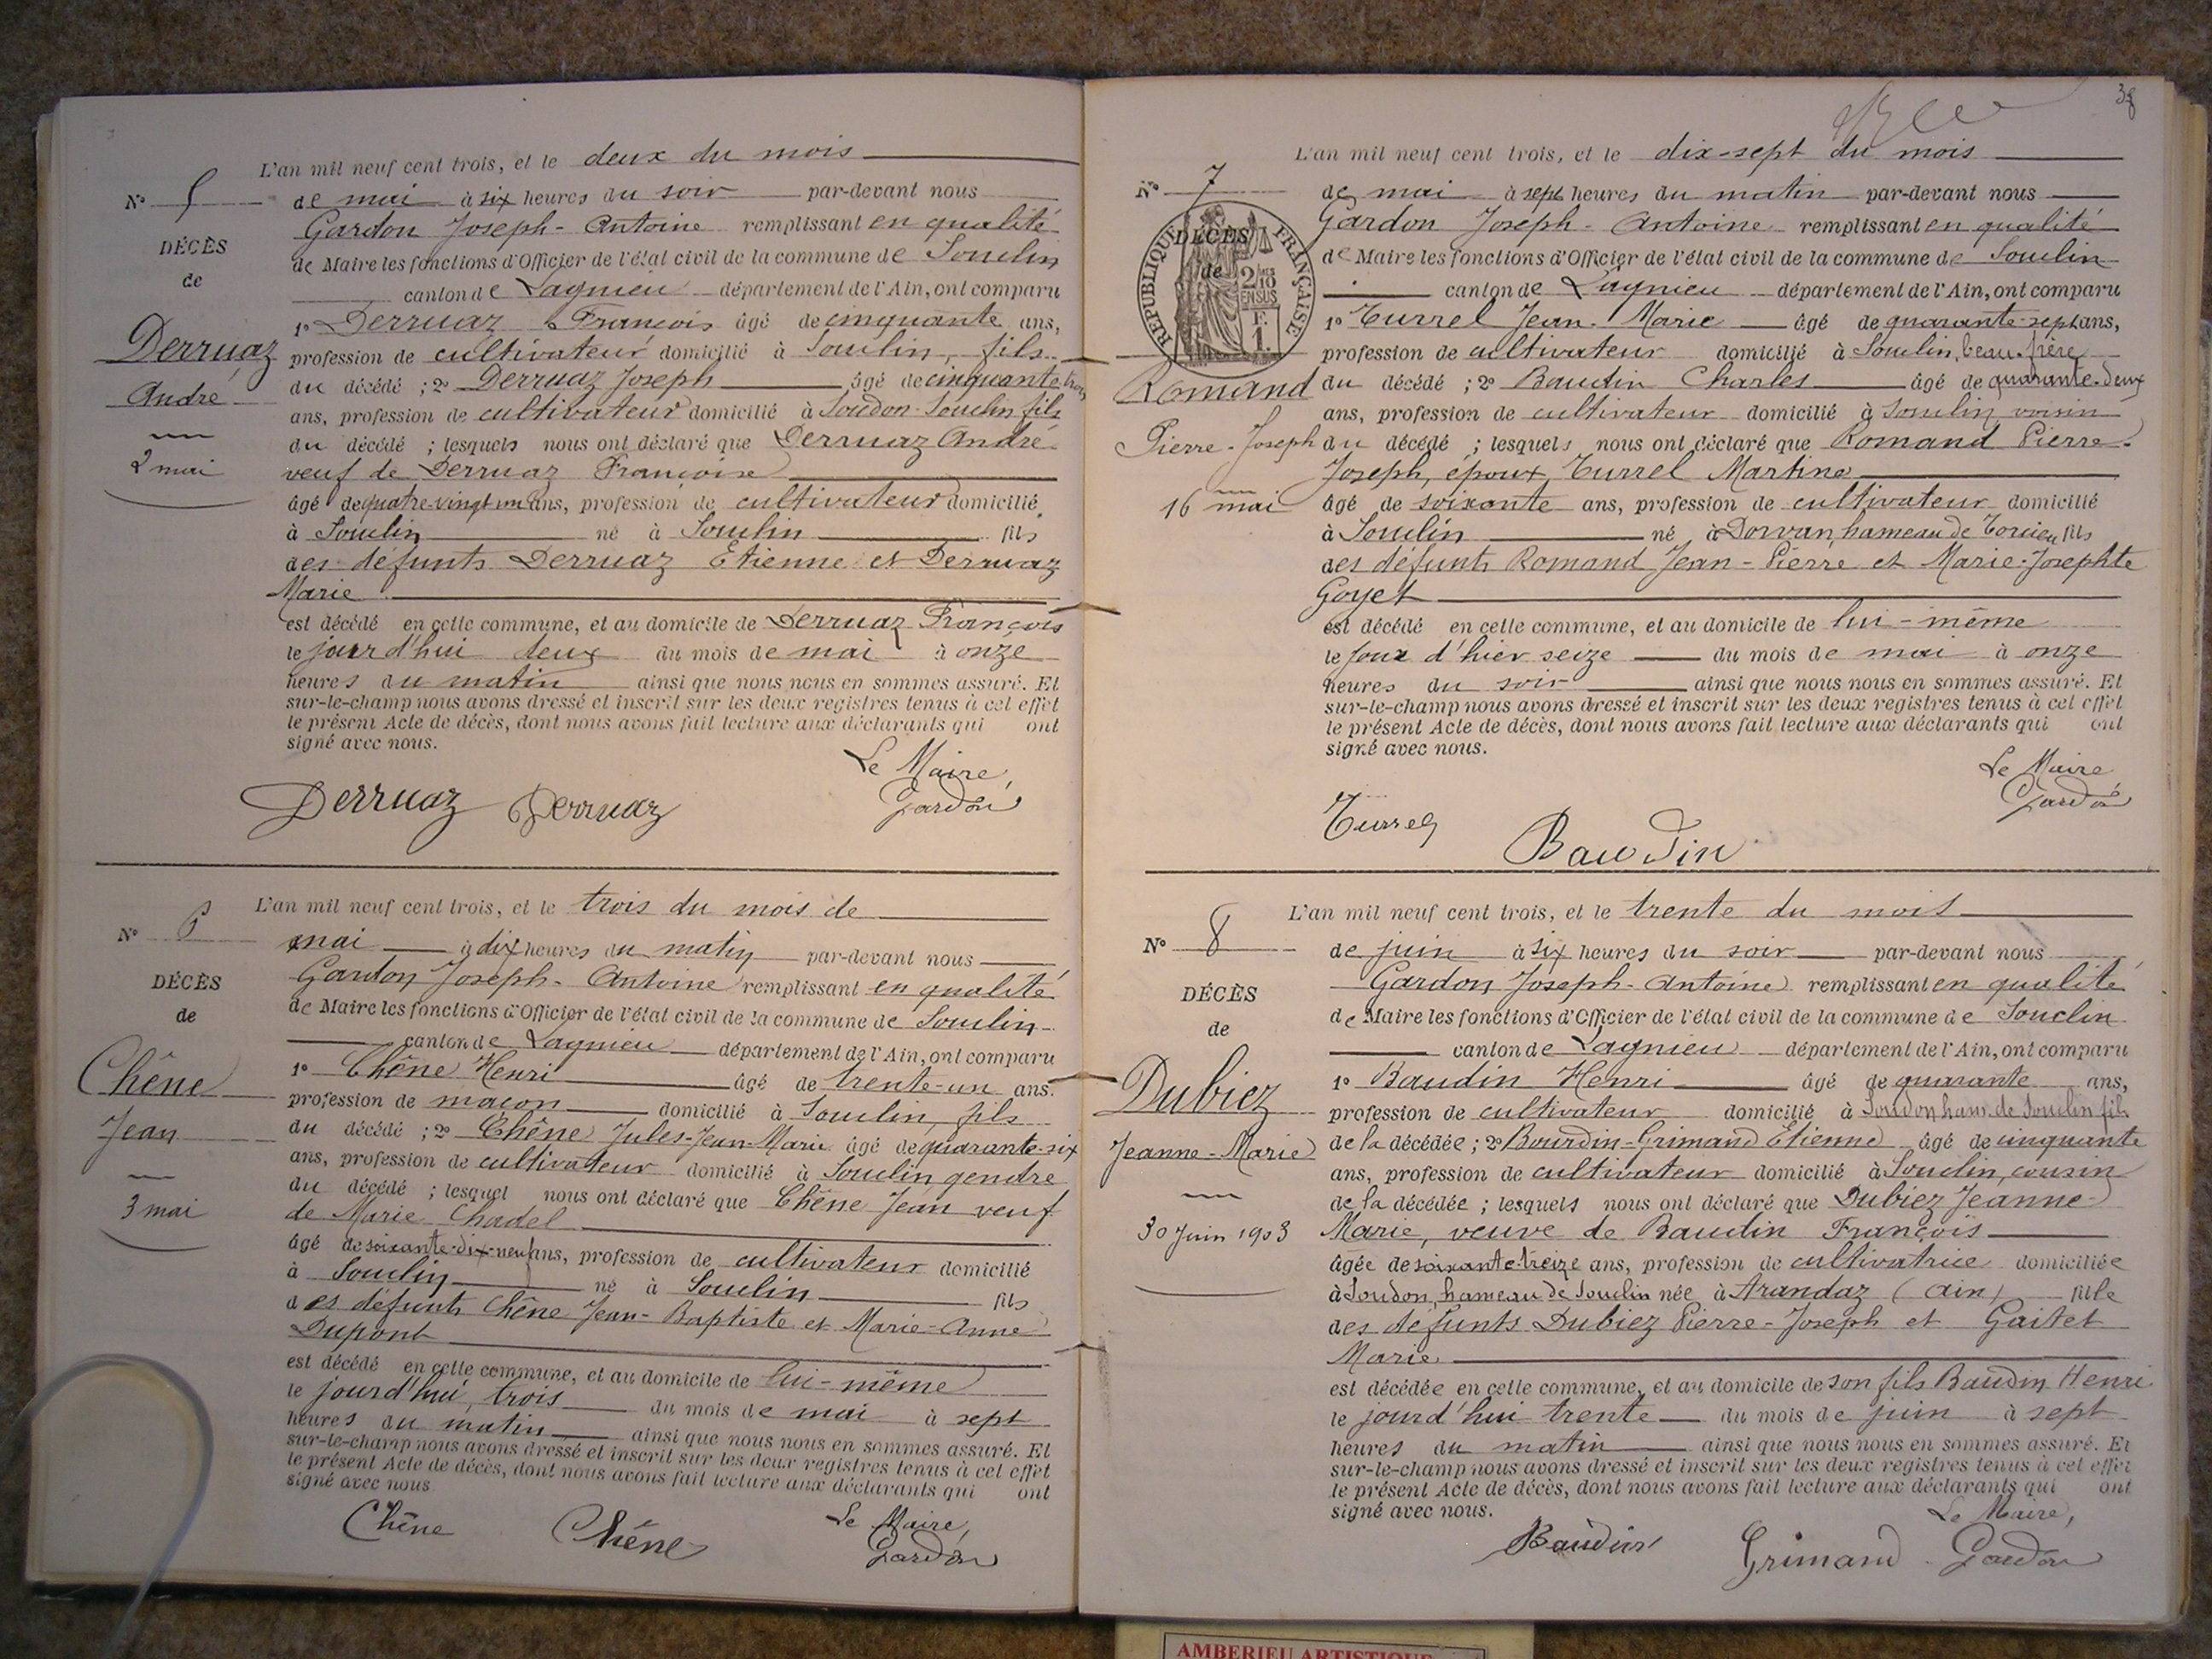 L'an mil neuf cent trois, et le deux du mois
N° 5 de mai à six heures du soir par-devant nous
Gardon Joseph-Antoine remplissant en qualité
DÉCÈS
de Maire les fonctions d'Officier de l'état civil de la commune de Souclin
de
canton de Lagnieu département de l'Ain, ont comparu
1° Derruaz François âgé de cinquante ans,
Derruaz
profession de cultivateur domicilié à Souclin, fils
André
du décédé ; 2° Derruaz Joseph âgé de cinquante-trois
ans, profession de cultivateur domicilié à Soudon-Souclin fils
du décédé ; lesquels nous ont déclaré que Derruaz André
2 mai
veuf de Derruaz Françoise
âgé de quatre-vingt-un ans, profession de cultivateur domicilié
à Souclin né à Souclin fils
des défunts Derruaz Etienne et Derruaz
Marie
est décédé en cette commune, et au domicile de Derruaz François
le jourd'hui deux du mois de mai à onze
heures du matin ainsi que nous nous en sommes assuré. Et
sur-le-champ nous avons dressé et inscrit sur les deux registres tenus à cet effet
le présent Acte de décès, dont nous avons fait lecture aux déclarants qui ont
signé avec nous.
Le Maire,
Derruaz Derruaz Gardon
L'an mil neuf cent trois, et le trois du mois de
N° 6 mai à dix heures du matin par-devant nous
Gardon Joseph-Antoine remplissant en qualité
DÉCÈS
de Maire les fonctions d'Officier de l'état civil de la commune de Souclin
de
canton de Lagnieu département de l'Ain, ont comparu
1° Chêne Henri âgé de trente-un ans.
Chêne
profession de maçon domicilié à Souclin, fils
Jean
du décédé ; 2° Chêne Jules-Jean-Marie âgé de quarante-six
ans, profession de cultivateur domicilié à Souclin, gendre
du décédé ; lesquel nous ont déclaré que Chêne Jean veuf
3 mai
de Marie Chadel
âgé de soixante-dix-neuf ans, profession de cultivateur domicilié
à Souclin né à Souclin fils
des défunts Chêne Jean-Baptiste et Marie-Anne
Dupont
est décédé en cette commune, et au domicile de lui-même
le jourd'hui, trois du mois de mai à sept
heures du matin ainsi que nous nous en sommes assuré. Et
sur-le-champ nous avons dressé et inscrit sur les deux registres tenus à cet effet
le présent Acte de décès, dont nous avons fait lecture aux déclarants qui ont
signé avec nous
Le Maire,
Chêne Chêne Gardon
38
L'an mil neuf cent trois, et le dix-sept du mois
N° 7 de mai à sept heures du matin par-devant nous
Gardon Joseph-Antoine remplissant en qualité
DÉCÈS
RÉPUBLIQUE FRANÇAISE
de
2/10 EN SUS
de Maire les fonctions d'Officier de l'état civil de la commune de Souclin
canton de Lagnieu département de l'Ain, ont comparu
1° Turrel Jean-Marie âgé de quarante-sept ans,
profession de cultivateur domicilié à Souclin, beau-frère
Romand
du décédé ; 2° Baudin Charles âgé de quarante-deux
ans, profession de cultivateur domicilié à Souclin, voisin
Pierre-Joseph
du décédé ; lesquels nous ont déclaré que Romand Pierre-
Joseph, époux Turrel Martine
16 mai
âgé de soixante ans, profession de cultivateur domicilié
à Souclin né à Dorvan, hameau de Torcieu fils
des défunts Romand Jean-Pierre et Marie-Josephte
Goyet
est décédé en cette commune, et au domicile de lui-même
le jour d'hier seize du mois de mai à onze
heures du soir ainsi que nous nous en sommes assuré. Et
sur-le-champ nous avons dressé et inscrit sur les deux registres tenus à cet effet
le présent Acte de décès, dont nous avons fait lecture aux déclarants qui ont
signé avec nous.
Le Maire
Turrel Baudin Gardon
L'an mil neuf cent trois, et le trente du mois
N° 8 de juin à six heures du soir par-devant nous
Gardon Joseph-Antoine remplissant en qualité
DÉCÈS
de Maire les fonctions d'Officier de l'état civil de la commune de Souclin
de
canton de Lagnieu département de l'Ain, ont comparu
1° Baudin Henri âgé de quarante ans,
Dubiez
profession de cultivateur domicilié à Soudon ham. de Souclin fils
Jeanne-Marie
de la décédée ; 2° Bourdin-Grimand Etienne âgé de cinquante
ans, profession de cultivateur domicilié à Souclin, cousin
de la décédée ; lesquels nous ont déclaré que Dubiez Jeanne-
30 Juin 1903
Marie, veuve de Baudin François
âgée de soixante-treize ans, profession de cultivatrice domiciliée
à Soudon, hameau de Souclin née à Arandaz (Ain) fille
des défunts Dubiez Pierre-Joseph et Gaitet
Marie
est décédée en cette commune, et au domicile de son fils Baudin Henri
le jourd'hui trente du mois de juin à sept
heures du matin ainsi que nous nous en sommes assuré. Et
sur-le-champ nous avons dressé et inscrit sur les deux registres tenus à cet effet
le présent Acte de décès, dont nous avons fait lecture aux déclarants qui ont
signé avec nous.
Le Maire,
Baudin Grimand Gardon
AMBERIEU ARTISTIQUE